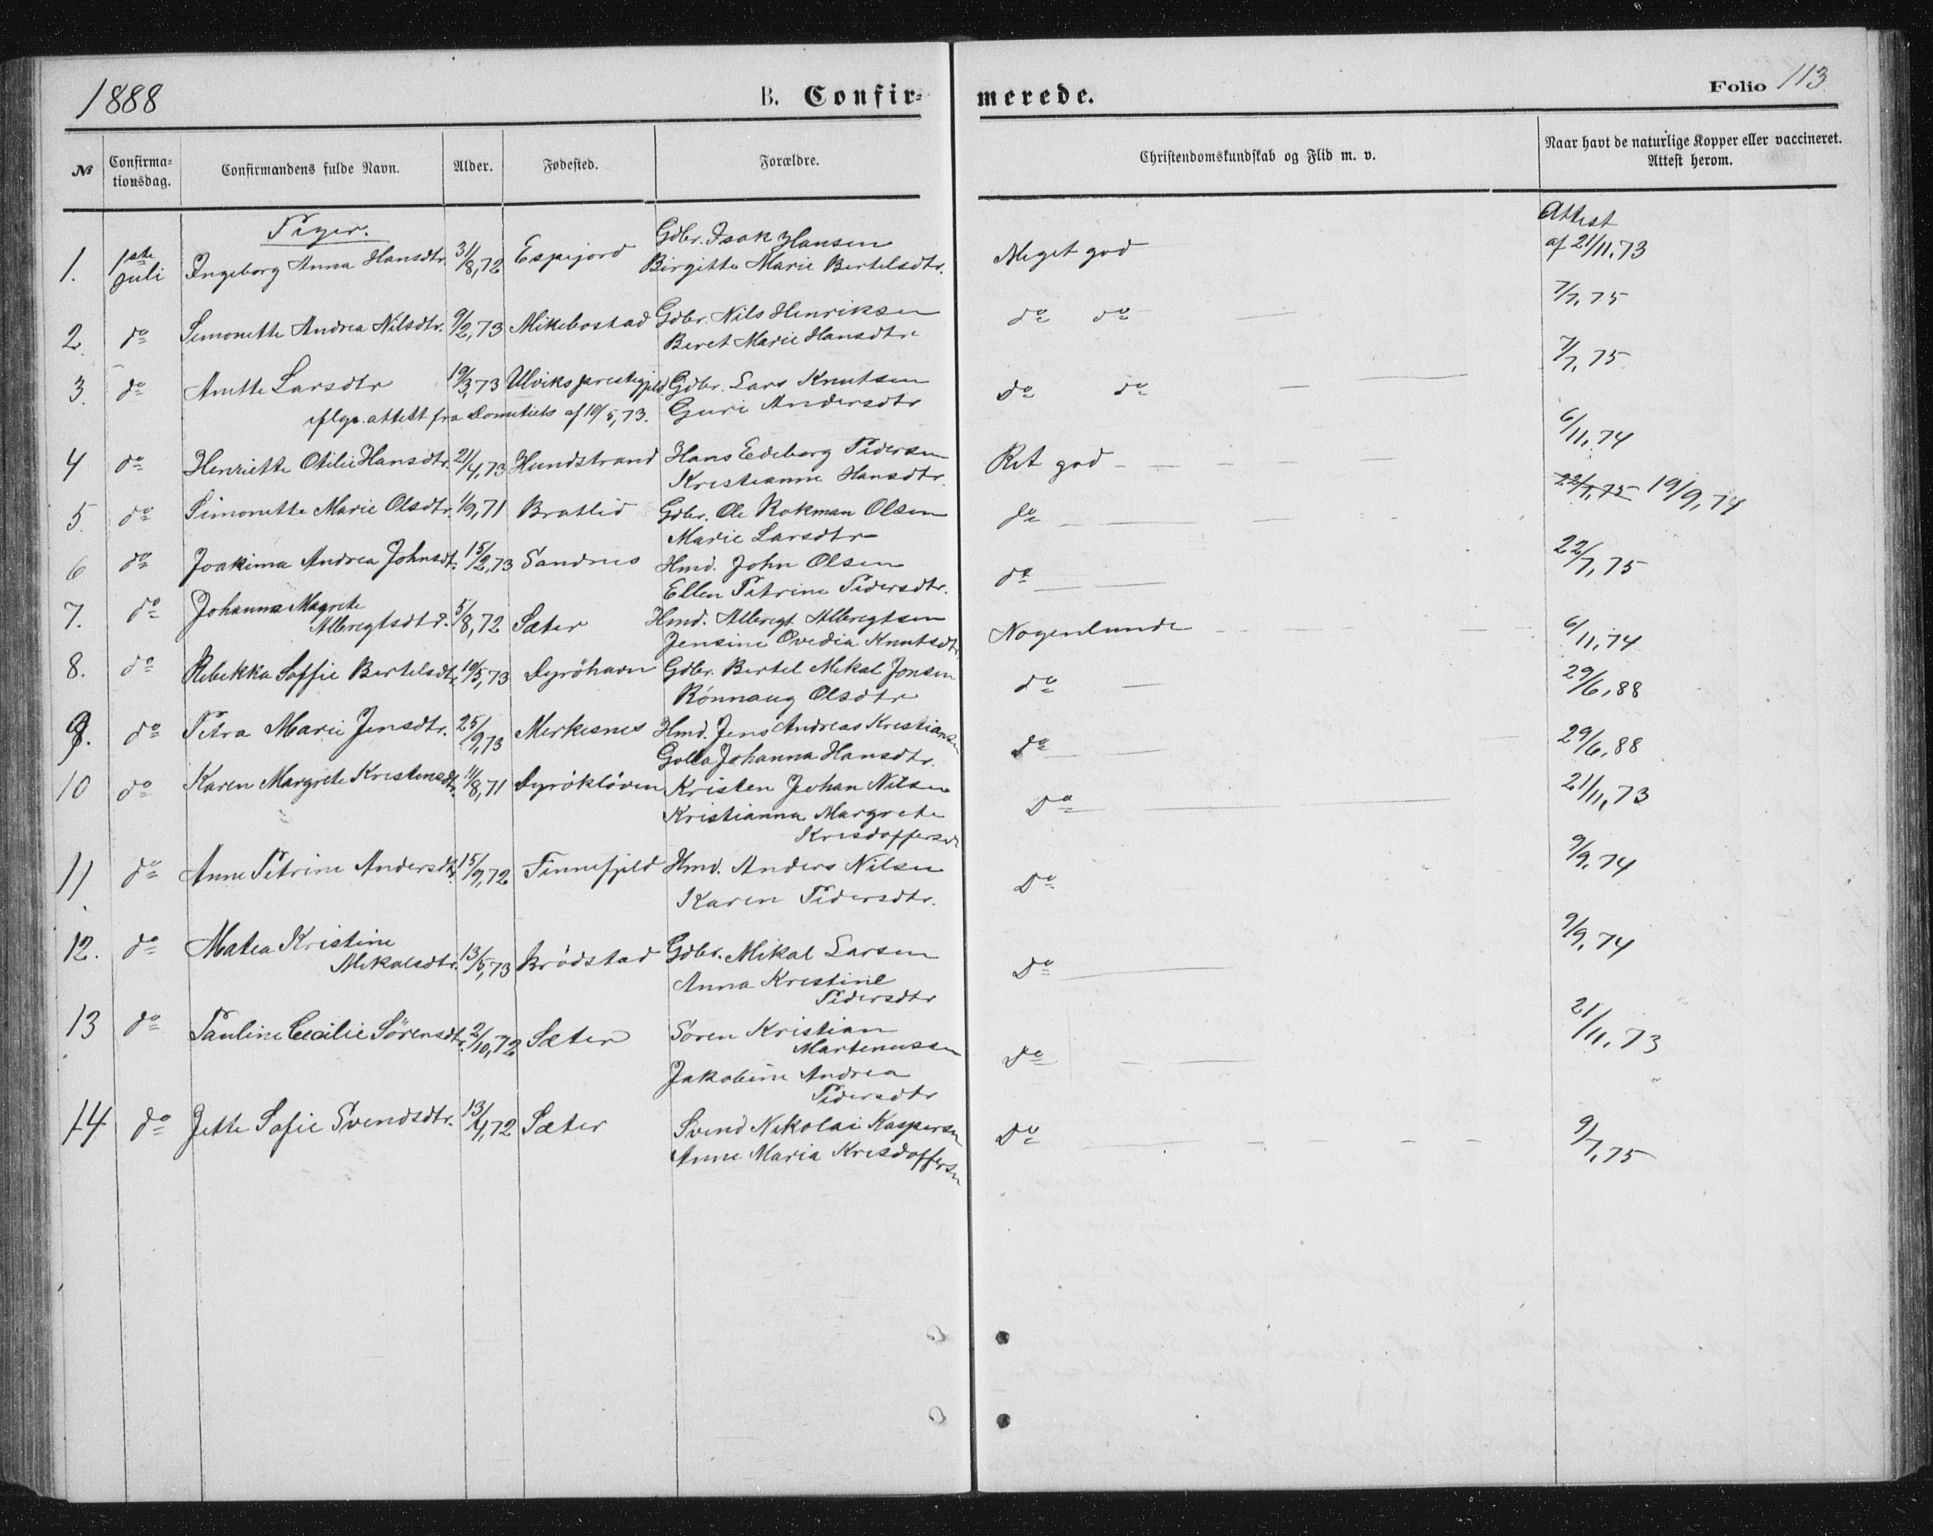 1888 B. Confir= merede. Folio 113
№ Confirma=tionsdag. Confirmandens fulde Navn. Alder. Fødested. Forældre. Christendomskundskab og Flid m. v. Naar havt de naturlige Kopper eller vaccineret. Attest herom.
Piger.
1. 1ste Juli Ingeborg Anna Hansdtr. 31/8,72 Espejord Gdbr. Isak Hansen Meget god Attest af 21/11,73
Birgitte Marie Bertelsdtr.
2 do Simonette Andrea Nilsdtr. 9/2,73 Mikebostad Gdbr. Nils Henriksen do do 7/7,75
Beret Marie Hansdtr
3. do Anette Larsdtr 19/3,73 Ulviks præstegjeld Gdbr. Lars Knutsen do do 7/7,75
iflge. attest fra af 10/5,73. Guri Andersdtr
4 do Henriette Otilie Hansdtr. 21/4,73 Hundstrand Hans Edeborg Pedersen Ret god 6/11,74
Kristianne Hansdtr.
5 do Simonette Marie Olsdtr. 1/9,71 Bratlid Gdbr. Ole Rokman Olsen do 22/7,75 19/9,74
Marie Larsdtr
6 do Joakima Andrea Johnsdt. 15/2,73 Sandnes Hmd. John Olsen do 22/7,75
Ellen Petrine Pedersdtr.
7. do Johanna Magrete 5/8,72 Sæter Hmd. Albregt Albregtsen Nogenlunde 6/11,74
Albregtsdtr. Jensine Ovedia Knutsdtr
8. do Rebekka Soffie Bertelsdt. 10/5,73 Dyröhavn Gdbr. Bertel Mikal Jonsen do 29/6,88
Rönnaug Olsdtr
9. do Petra Marie Jensdtr. 25/9,73 Merkesnes Hmd. Jens Andreas Kristiansen Do 29/6,88
Golla Johanna Hansdtr.
10 do Karen Margrete Kristensdt. 11/8,71 Dyröklöven Kristen Johan Nilsen Do 21/11,73
Kristianna Margrete
Krisdoffersdt
11 do Anne Petrine Andersdt. 15/9,72 Finnefjeld Hmd. Anders Nilsen Do 9/9,74
Karen Pedersdtr.
12. do Matea Kristine 13/5,73 Brödstad Gdbr. Mikal Larsen Do 9/9,74
Mikalsdtr. Anna Kristine
Pedersdtr
13 do Pauline Cecilie Sörensdt. 2/10,72 Sæter Sören Kristian Do 21/11,73
Martenussen
Jakobine Andrea
Pedersdtr
14 do Jette Sofie Svendsdtr. 13/4,72 Sæter Svend Nikolai Kaspersen Do 9/7,75
Anne Maria Krisdoffersen